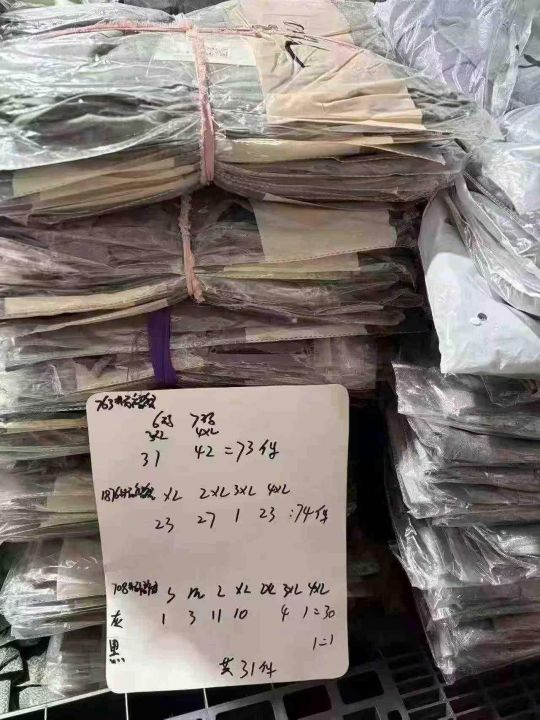 763#
6码 7码
3XL 4XL
31 42 =73件
1876# XL 2XL 3XL 4XL
23 27 1 23 :74件
708# S M L XL 2XL 3XL 4XL
灰 1 3 11 10 4 1=30
黑 1=1
共31件